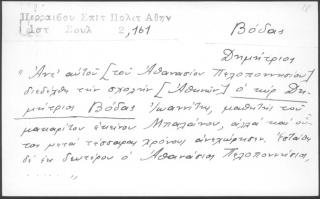 Περραιβου Επιτ Πολιτ Αθην
Ιστ Σουλ 2, 161
Βόδας
Δημήτριος
"Ἀντ' αὐτοῦ [τοῦ Ἀθανασίου Πελοποννησίου]
διεδέχθη τὴν σχολὴν [Ἀθηνῶν] ὁ κὺρ Δη-
μήτριος Βόδας Ἰωαννίτης, μαθητὴς τοῦ
μακαρίτου ἐκείνου Μπαλάνου, ἀλλὰ καὶ οὗ-
τος μετὰ τέσσαρας χρόνους ἀνεχώρησεν. Ἐστάθη
δὲ ἐκ δευτέρου ὁ Ἀθανάσιος Πελοποννήσιος,
. . . . . . "